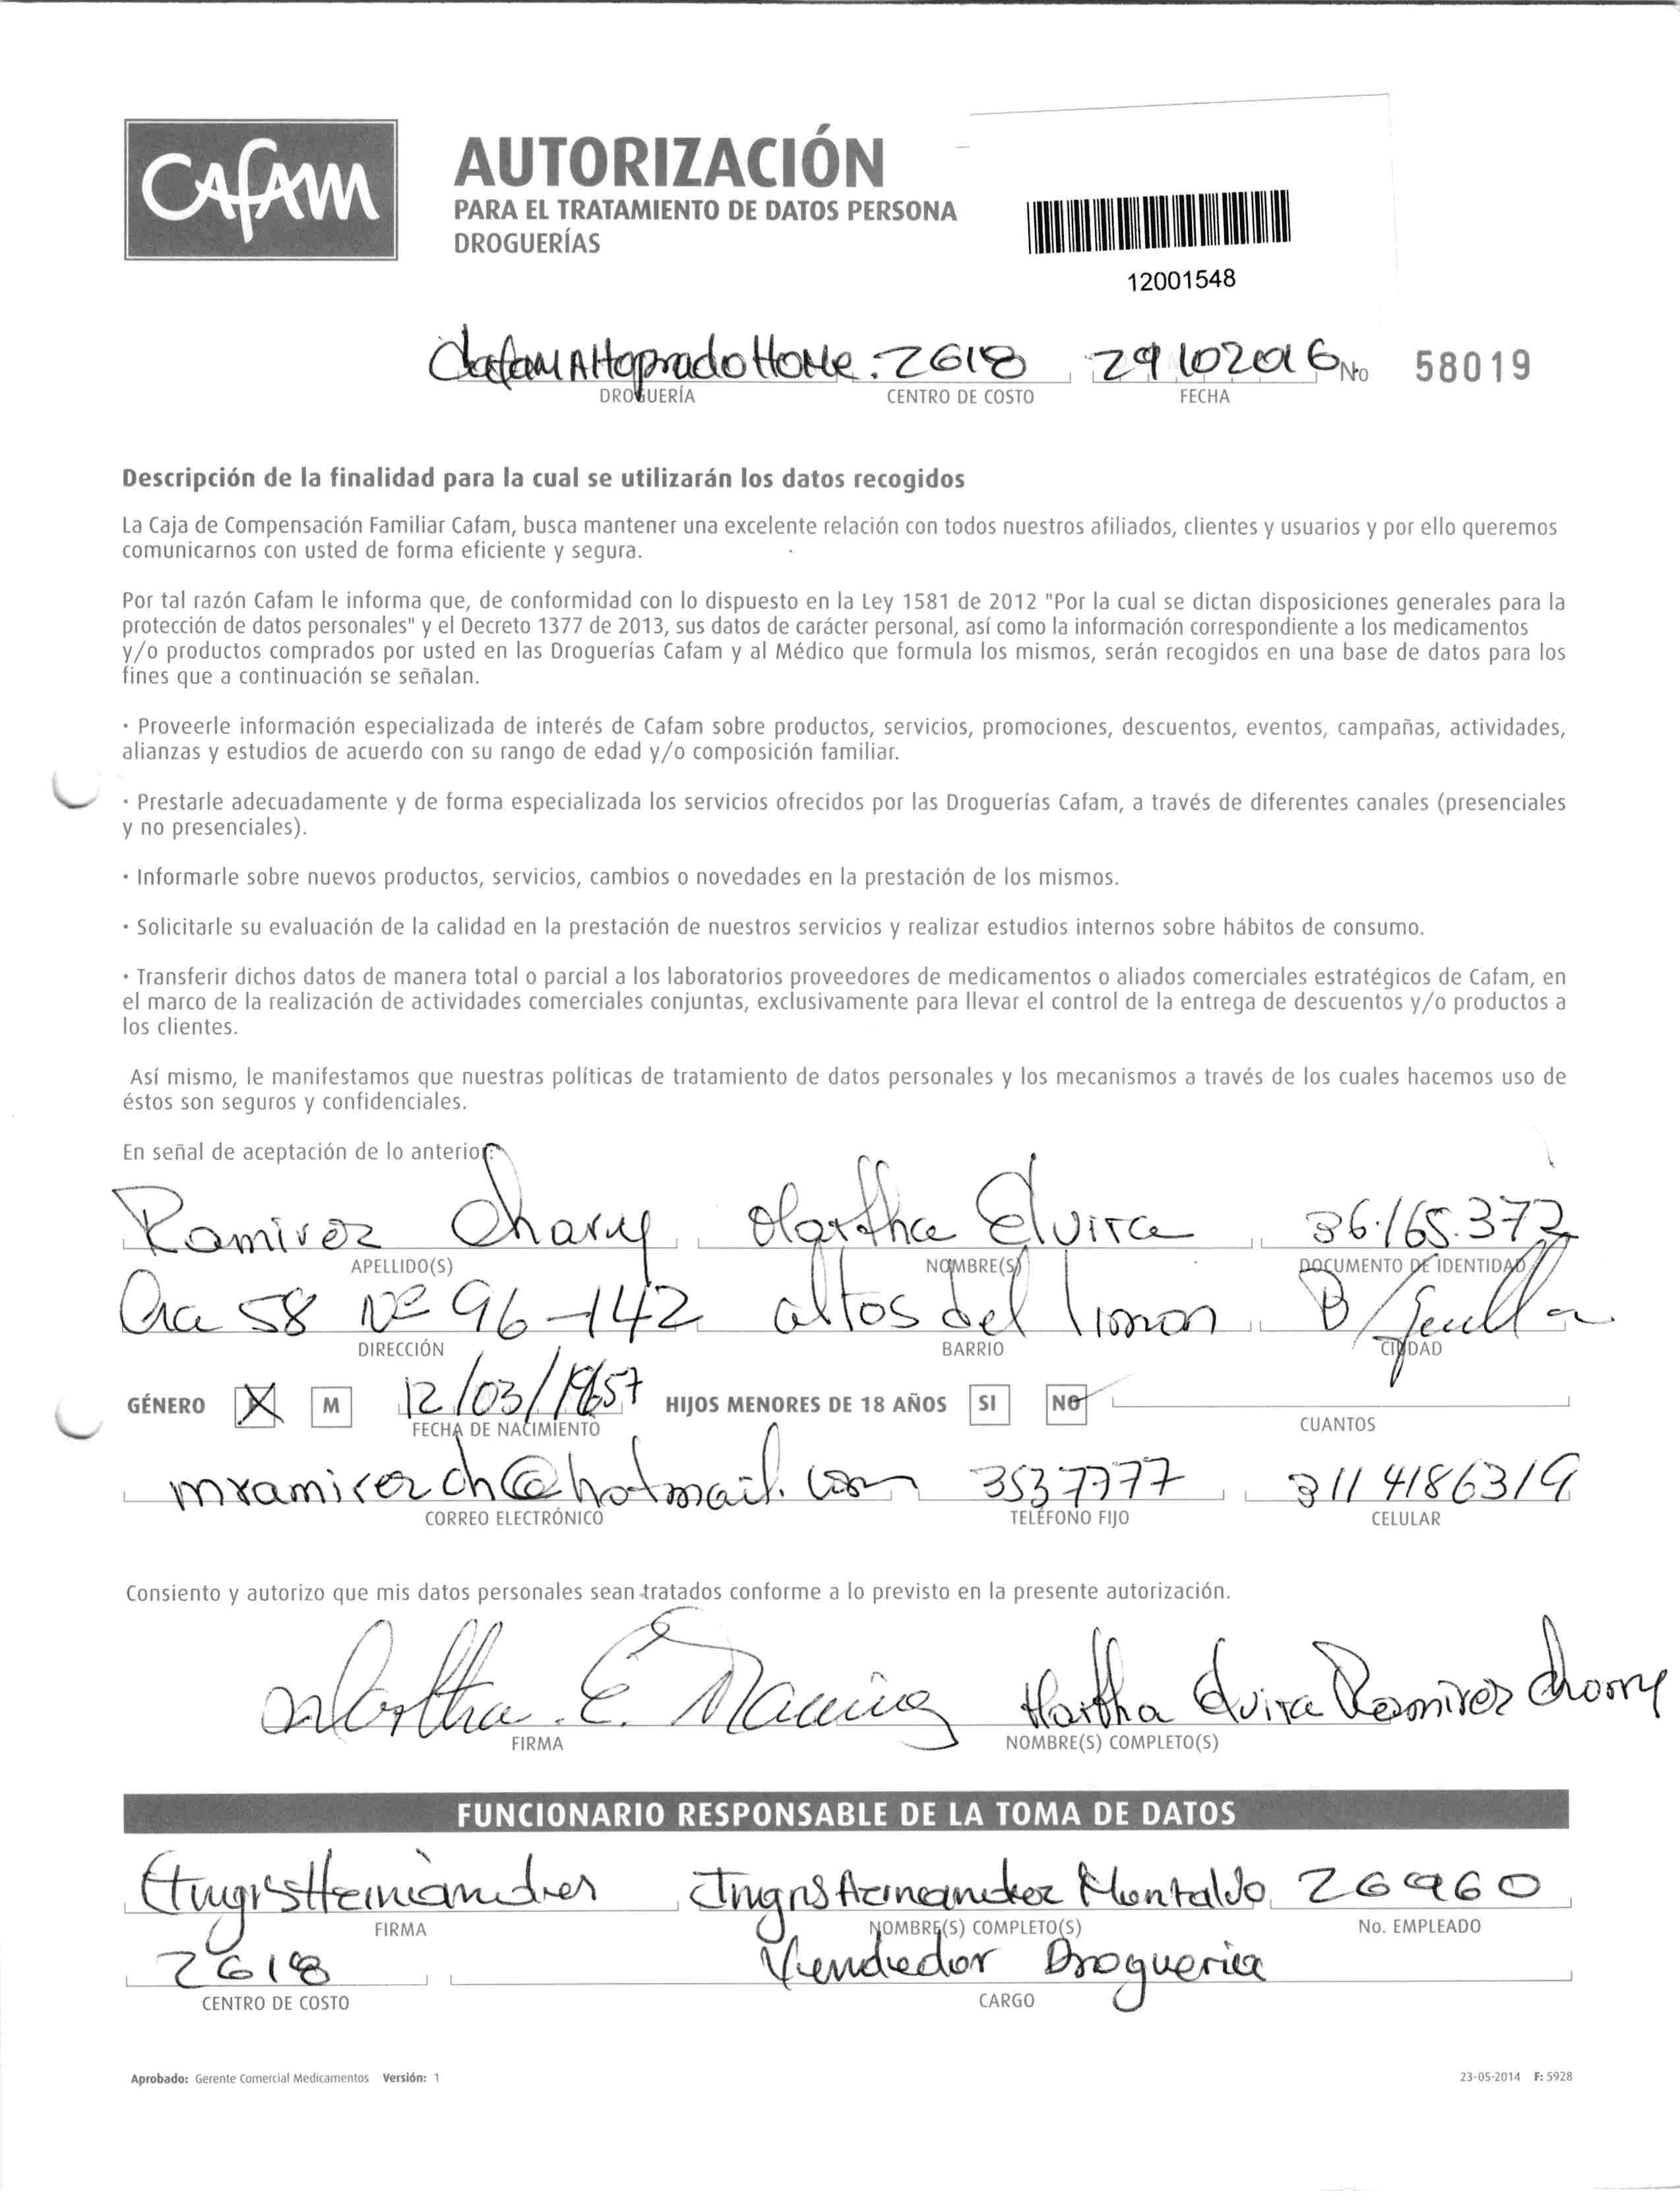 CAFAM
AUTORIZACIÓN
PARA EL TRATAMIENTO DE DATOS PERSONA
DROGUERÍAS
12001548
Cafam Altoprado Home. 2618 29 10 2016 No 58019
DROGUERÍA CENTRO DE COSTO FECHA
Descripción de la finalidad para la cual se utilizarán los datos recogidos
La Caja de Compensación Familiar Cafam, busca mantener una excelente relación con todos nuestros afiliados, clientes y usuarios y por ello queremos
comunicarnos con usted de forma eficiente y segura.
Por tal razón Cafam le informa que, de conformidad con lo dispuesto en la Ley 1581 de 2012 "Por la cual se dictan disposiciones generales para la
protección de datos personales" y el Decreto 1377 de 2013, sus datos de carácter personal, así como la información correspondiente a los medicamentos
y/o productos comprados por usted en las Droguerías Cafam y al Médico que formula los mismos, serán recogidos en una base de datos para los
fines que a continuación se señalan.
· Proveerle información especializada de interés de Cafam sobre productos, servicios, promociones, descuentos, eventos, campañas, actividades,
alianzas y estudios de acuerdo con su rango de edad y/o composición familiar.
· Prestarle adecuadamente y de forma especializada los servicios ofrecidos por las Droguerías Cafam, a través de diferentes canales (presenciales
y no presenciales).
· Informarle sobre nuevos productos, servicios, cambios o novedades en la prestación de los mismos.
· Solicitarle su evaluación de la calidad en la prestación de nuestros servicios y realizar estudios internos sobre hábitos de consumo.
· Transferir dichos datos de manera total o parcial a los laboratorios proveedores de medicamentos o aliados comerciales estratégicos de Cafam, en
el marco de la realización de actividades comerciales conjuntas, exclusivamente para llevar el control de la entrega de descuentos y/o productos a
los clientes.
Así mismo, le manifestamos que nuestras políticas de tratamiento de datos personales y los mecanismos a través de los cuales hacemos uso de
éstos son seguros y confidenciales.
En señal de aceptación de lo anterior:
Ramirez Charry Martha Elvira 36.165.372
APELLIDO(S) NOMBRE(S) DOCUMENTO DE IDENTIDAD
Cra 58 Nº 96-142 altos del limon B/quilla
DIRECCIÓN BARRIO CIUDAD
GÉNERO X M 12/03/1957 HIJOS MENORES DE 18 AÑOS SI NO
FECHA DE NACIMIENTO CUANTOS
mramirezch@hotmail.com 3537777 311 4186319
CORREO ELECTRÓNICO TELÉFONO FIJO CELULAR
Consiento y autorizo que mis datos personales sean tratados conforme a lo previsto en la presente autorización.
Martha E. Ramirez Martha Elvira Ramirez Charry
FIRMA NOMBRE(S) COMPLETO(S)
FUNCIONARIO RESPONSABLE DE LA TOMA DE DATOS
Hernandez Hernandez Montaldo 26960
FIRMA NOMBRE(S) COMPLETO(S) No. EMPLEADO
2618 Vendedor Drogueria
CENTRO DE COSTO CARGO
Aprobado: Gerente Comercial Medicamentos Versión: 1 23-05-2014 F: 5928